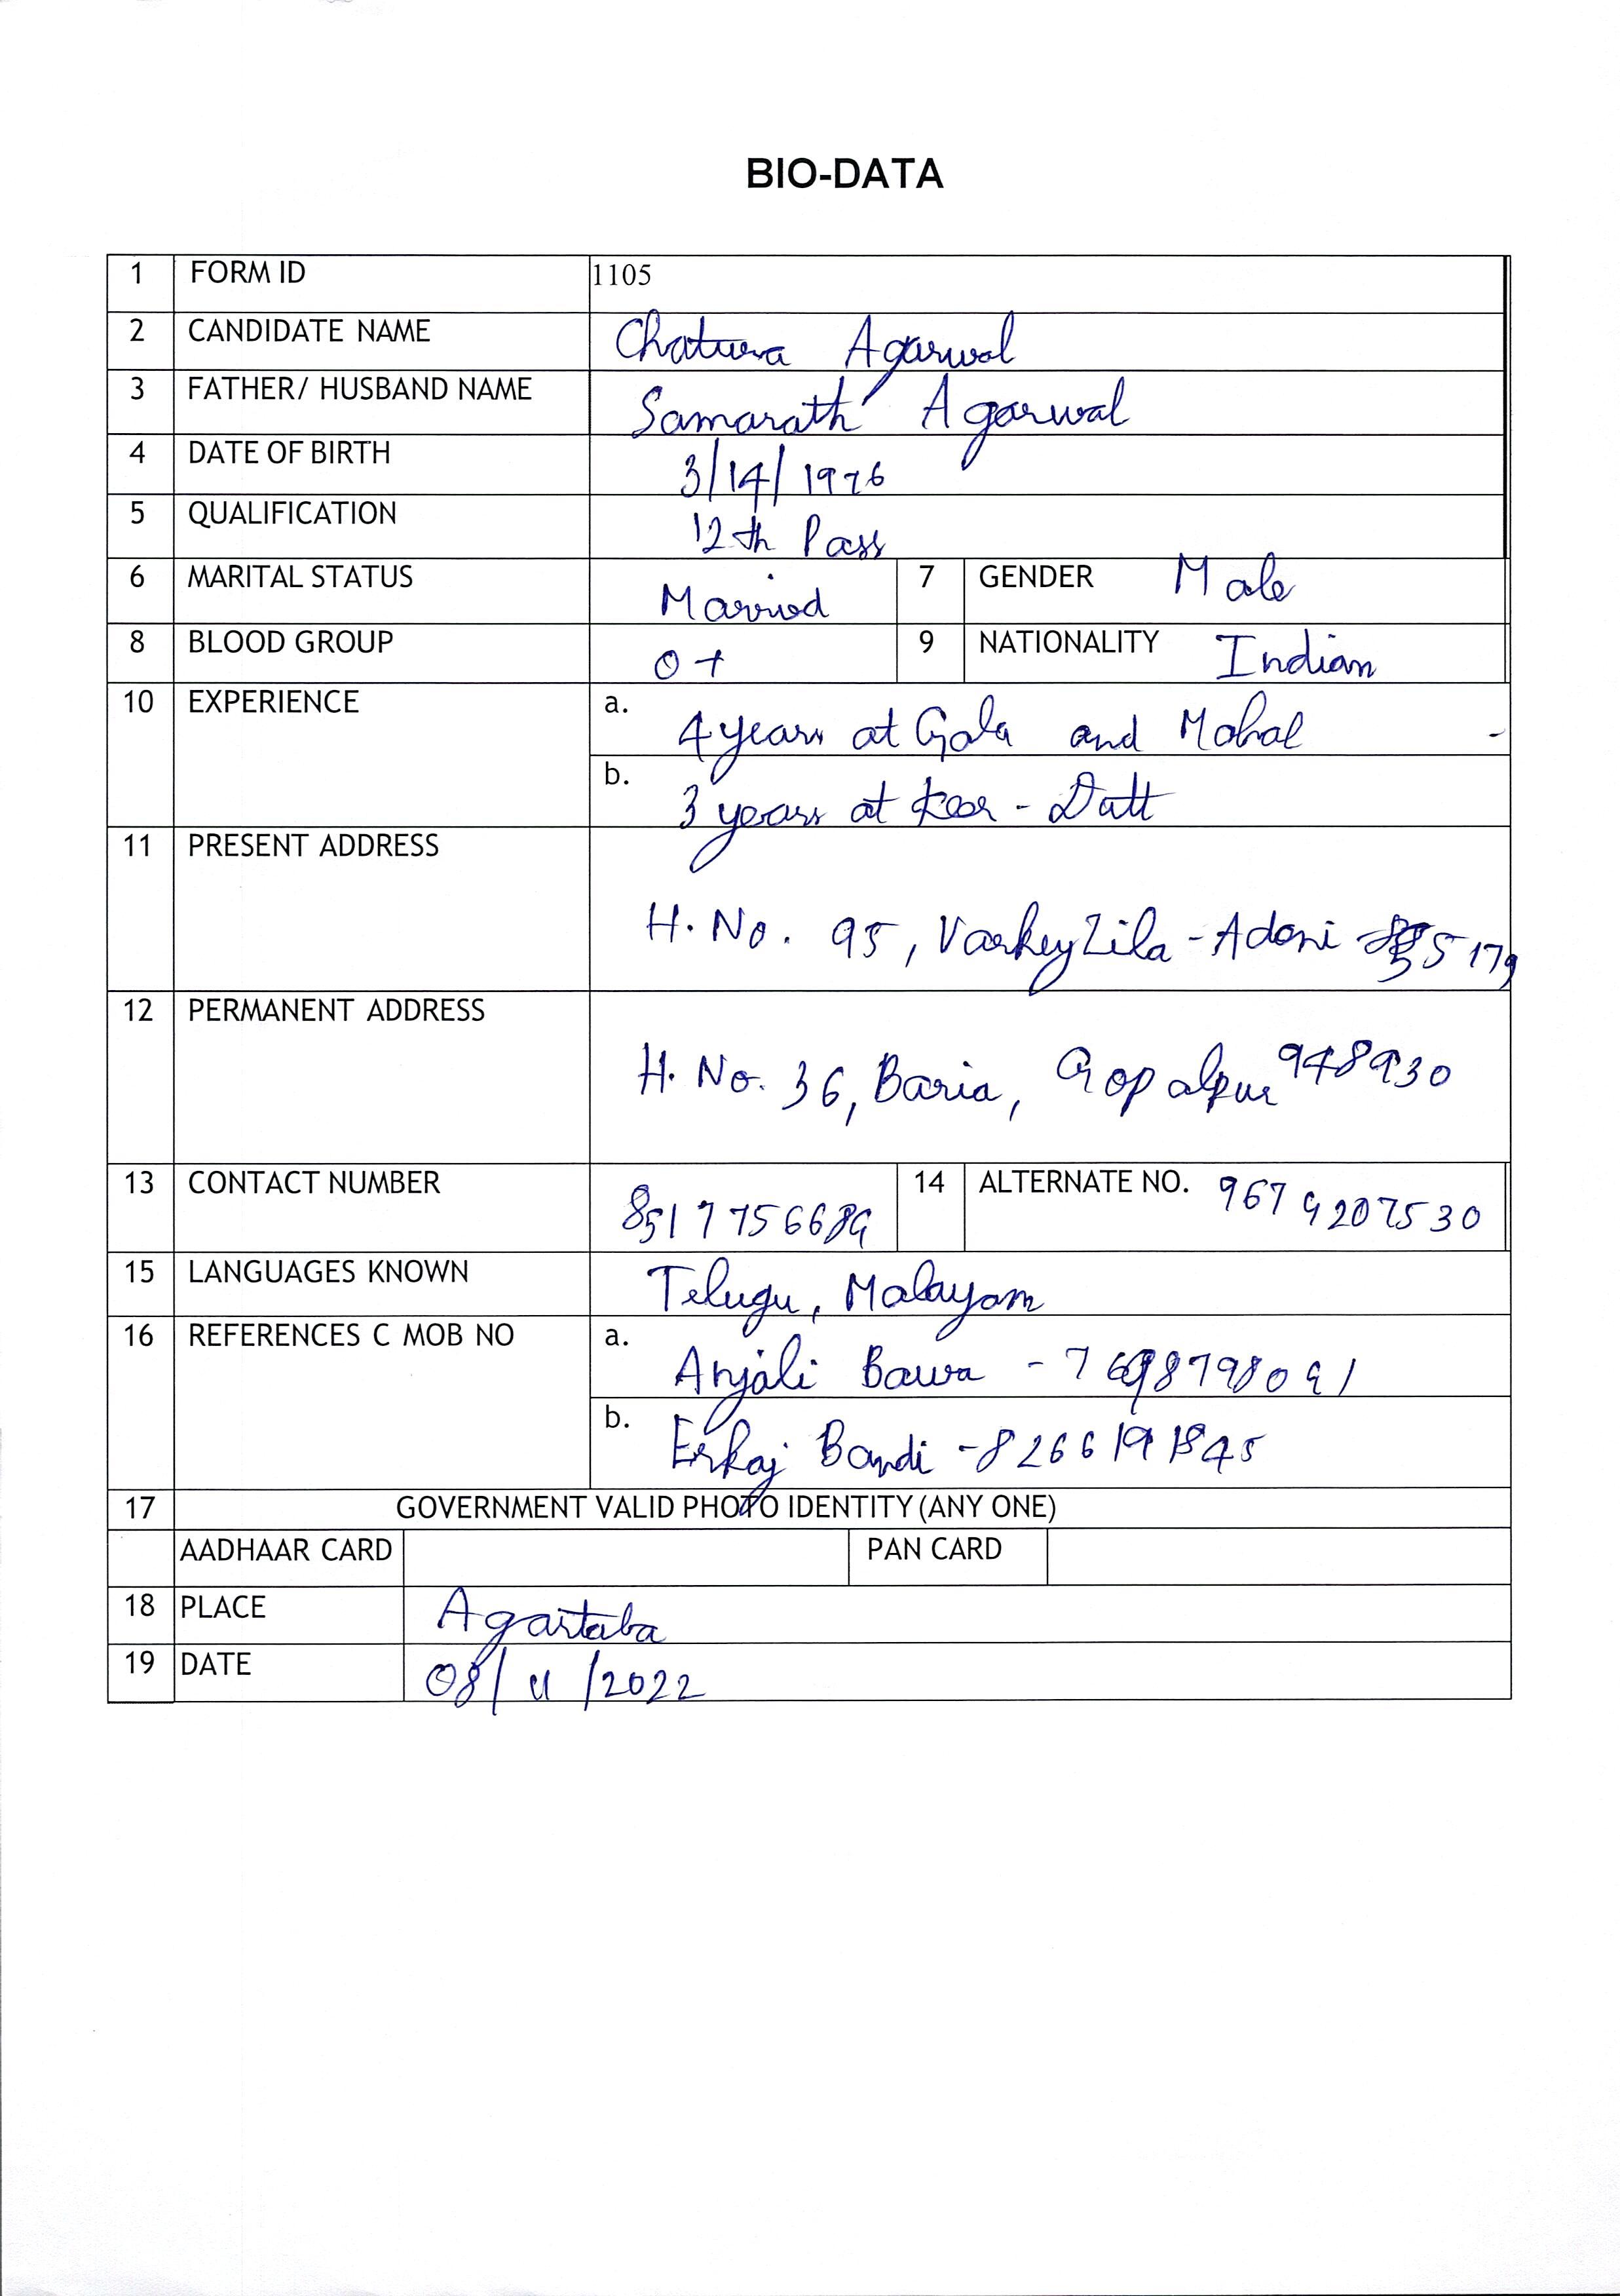 BIO-DATA
1 FORM ID 1105
2 CANDIDATE NAME Chatura Agarwal
3 FATHER/ HUSBAND NAME Samarath Agarwal
4 DATE OF BIRTH 3/14/1976
5 QUALIFICATION 12th Pass
6 MARITAL STATUS Married 7 GENDER Male
8 BLOOD GROUP O+ 9 NATIONALITY Indian
10 EXPERIENCE a. 4 years at Gala and Mahal
b. 3 years at Kar - Datt
11 PRESENT ADDRESS
H. No. 95, Varkey Zila - Adoni
12 PERMANENT ADDRESS
H. No. 36, Baria, Gopalpur 948930
13 CONTACT NUMBER 8517756689 14 ALTERNATE NO. 9679207530
15 LANGUAGES KNOWN Telugu, Malayam
16 REFERENCES C MOB NO a. Anjali Bawa - 7698798091
b. Erkaj Bandi - 8266191845
17 GOVERNMENT VALID PHOTO IDENTITY (ANY ONE)
AADHAAR CARD PAN CARD
18 PLACE Agartaba
19 DATE 08/11/2022